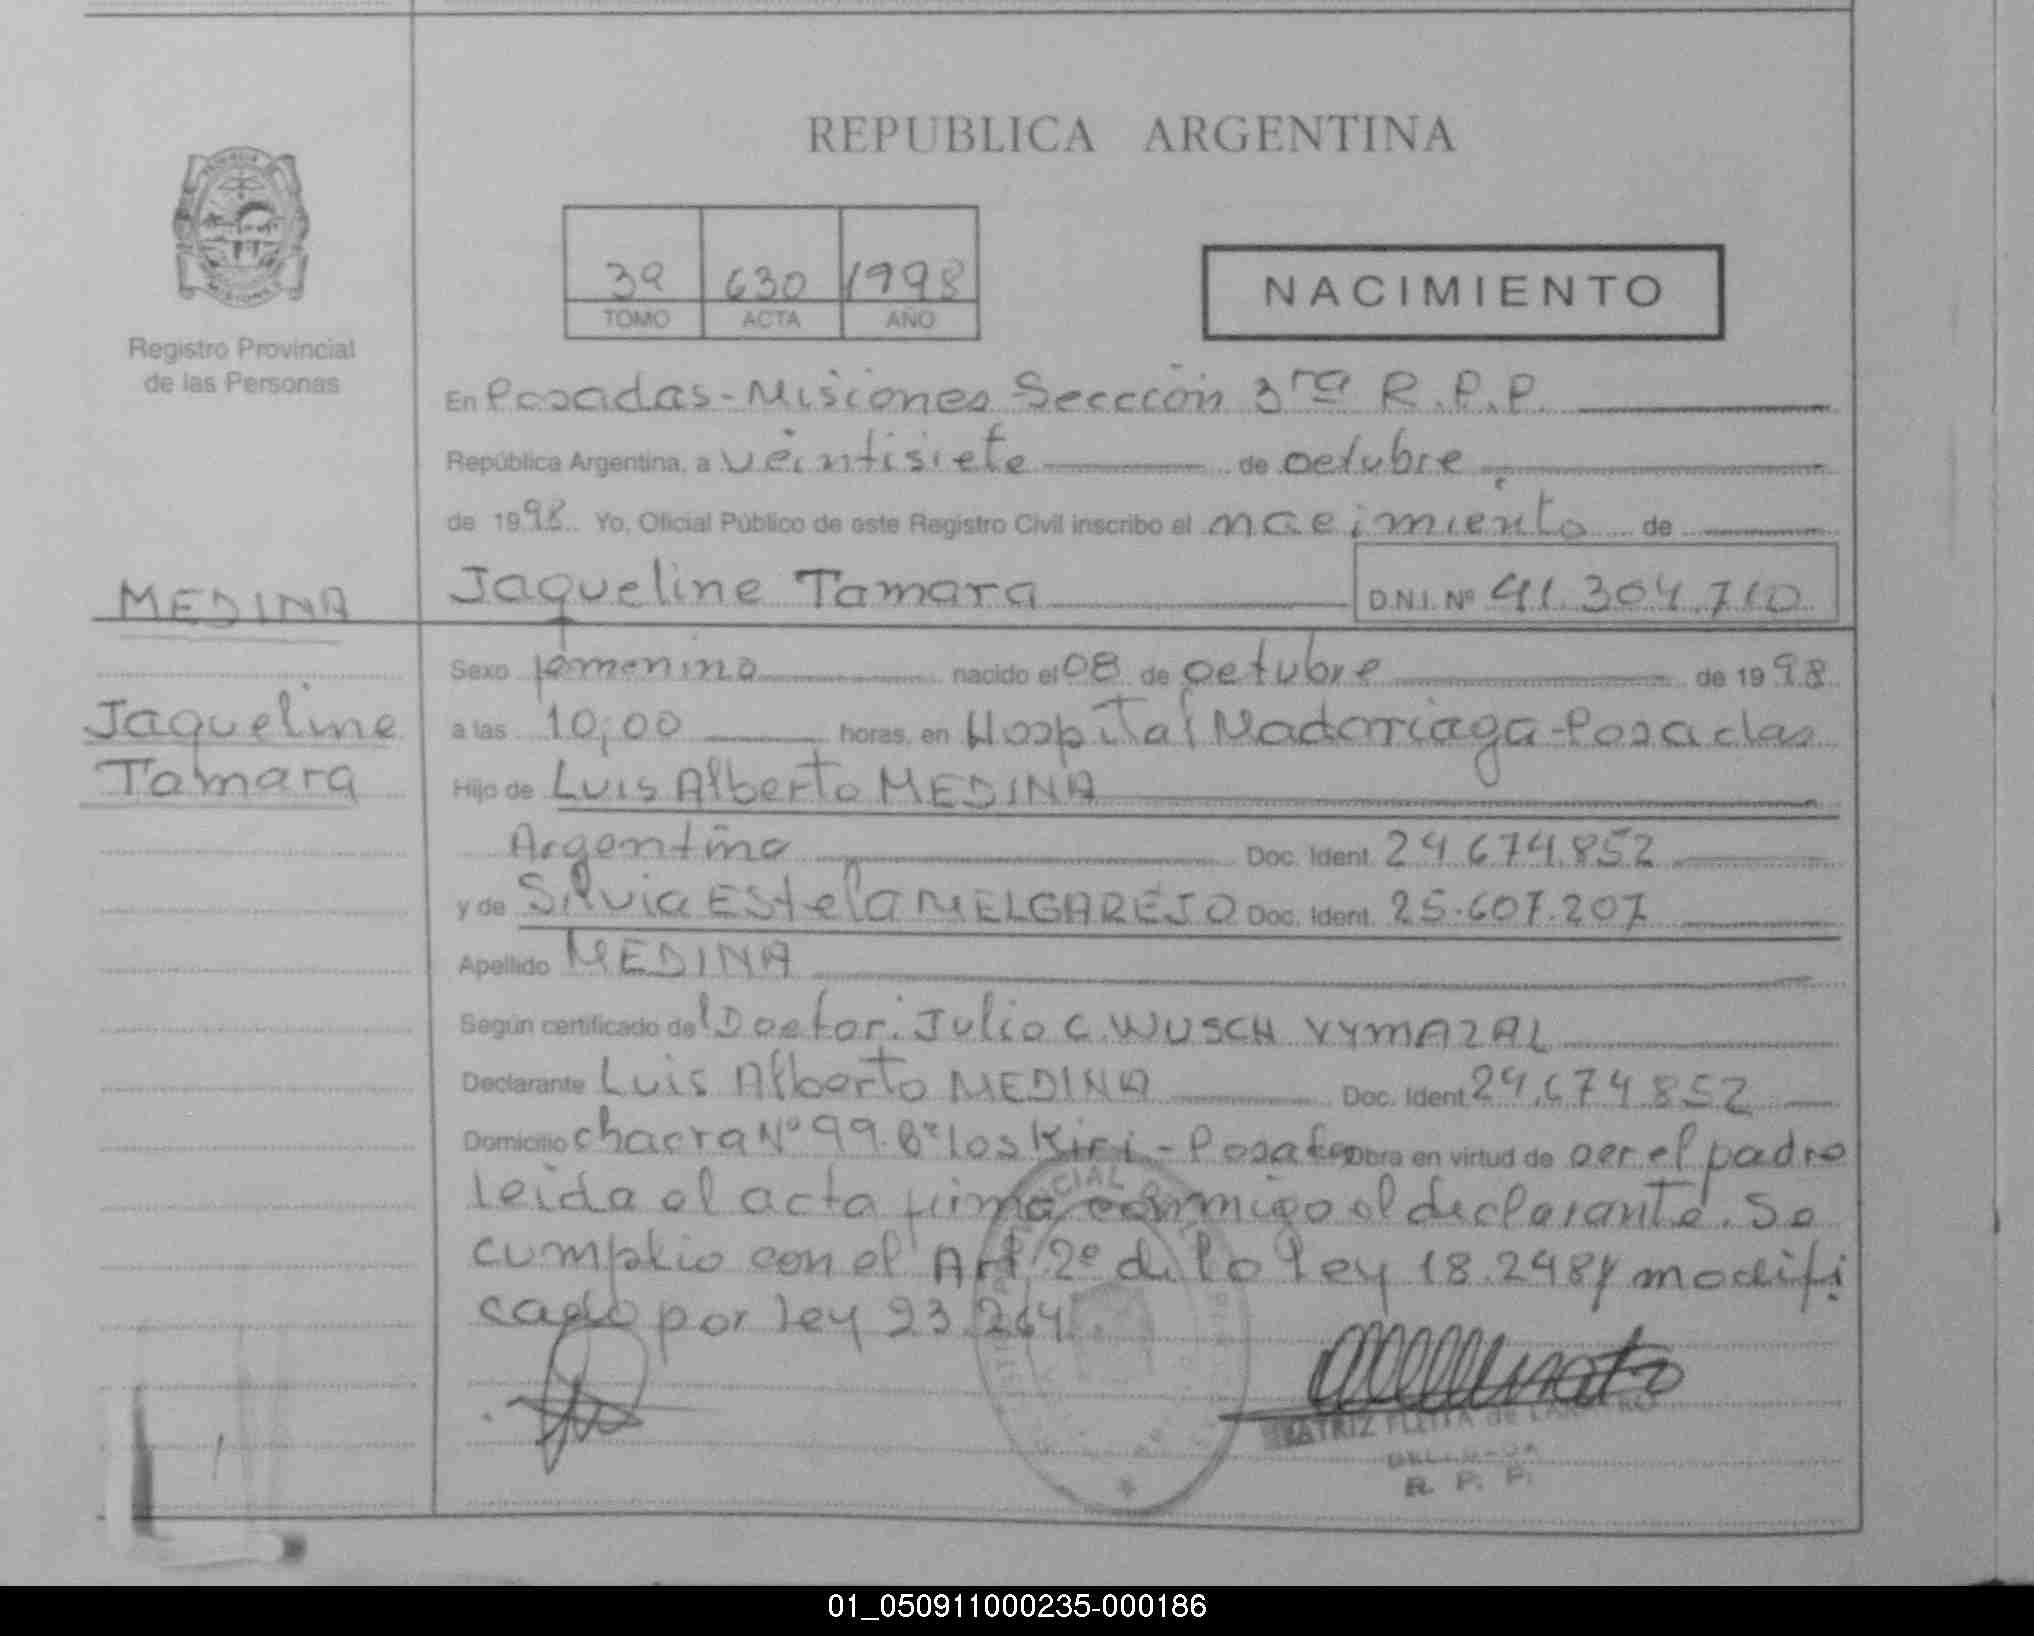 REPUBLICA ARGENTINA
3º 630 1998
TOMO ACTA AÑO
NACIMIENTO
Registro Provincial
de las Personas
En Posadas-Misiones Sección 3ra R.P.P.
República Argentina, a veintisiete de octubre
de 1998. Yo, Oficial Público de este Registro Civil inscribo el nacimiento de
MEDINA
Jaqueline Tamara D.N.I. Nº 41.304.710
Sexo femenino nacido el 08 de octubre de 1998
Jaqueline
Tamara
a las 10,00 horas, en Hospital Madariaga-Posadas
Hijo de Luis Alberto MEDINA
Argentina Doc. Ident. 24.674.852
y de Silvia Estela MELGAREJO Doc. Ident. 25.607.207
Apellido MEDINA
Según certificado del Doctor. Julio C. WUSCH VYMAZAL
Declarante Luis Alberto MEDINA Doc. Ident. 24.674.852
Domicilio chacra Nº 99. Bº los Kiri - Posadas Obra en virtud de ser el padre
leida el acta firma conmigo el declarante. Se
cumplio con el Art 2º de la ley 18.248 y modifi
cado por ley 23.264.
CIAL
BEATRIZ FLEITA de
R. P. P.
01_050911000235-000186